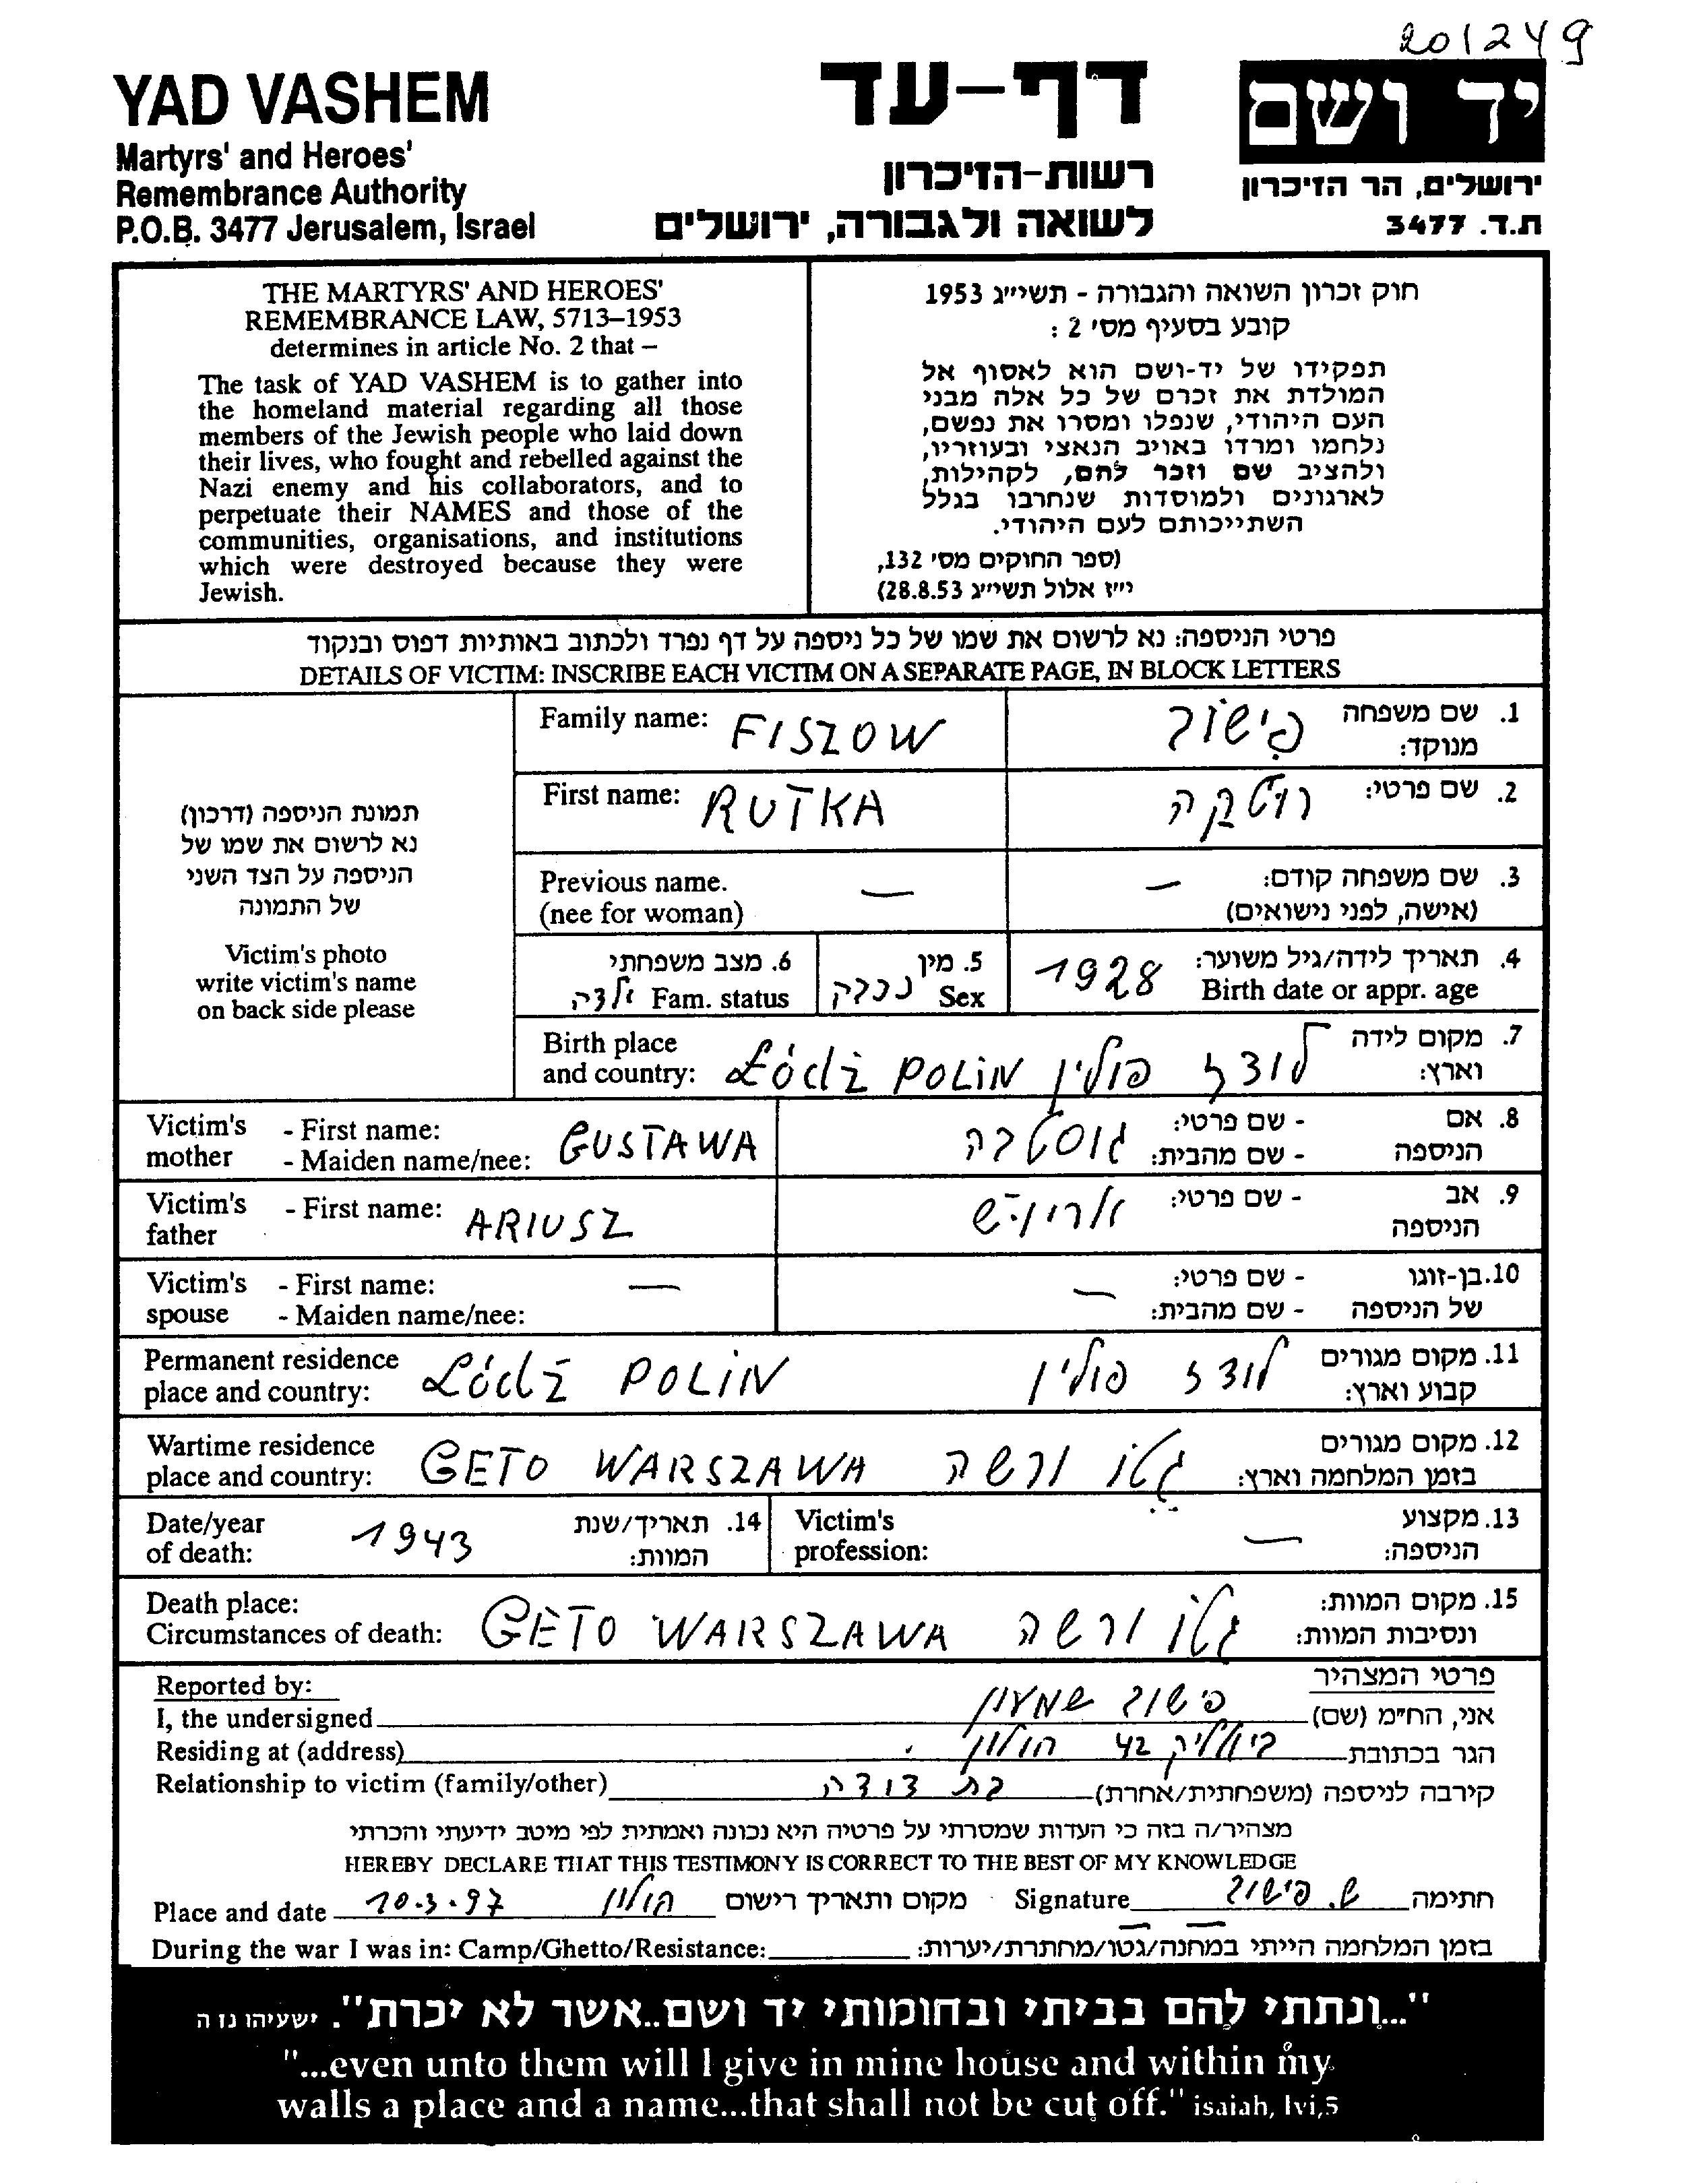 201249
YAD VASHEM
Martyrs' and Heroes'
Remembrance Authority
P.O.B. 3477 Jerusalem, Israel
דף-עד
רשות-הזיכרון
לשואה ולגבורה, ירושלים
יד ושם
ירושלים, הר הזיכרון
ת.ד. 3477
THE MARTYRS' AND HEROES'
REMEMBRANCE LAW, 5713–1953
determines in article No. 2 that –
The task of YAD VASHEM is to gather into
the homeland material regarding all those
members of the Jewish people who laid down
their lives, who fought and rebelled against the
Nazi enemy and his collaborators, and to
perpetuate their NAMES and those of the
communities, organisations, and institutions
which were destroyed because they were
Jewish.
חוק זכרון השואה והגבורה - תשי״ג 1953
קובע בסעיף מס׳ 2 :
תפקידו של יד-ושם הוא לאסוף אל
המולדת את זכרם של כל אלה מבני
העם היהודי, שנפלו ומסרו את נפשם,
נלחמו ומרדו באויב הנאצי ובעוזריו,
ולהציב שם וזכר להם, לקהילות,
לארגונים ולמוסדות שנחרבו בגלל
השתייכותם לעם היהודי.
(ספר החוקים מס׳ 132,
י״ז אלול תשי״ג 28.8.53)
פרטי הניספה: נא לרשום את שמו של כל ניספה על דף נפרד ולכתוב באותיות דפוס ובנקוד
DETAILS OF VICTIM: INSCRIBE EACH VICTIM ON A SEPARATE PAGE, IN BLOCK LETTERS
תמונת הניספה (דרכון)
נא לרשום את שמו של
הניספה על הצד השני
של התמונה
Victim's photo
write victim's name
on back side please
Family name: FISZOW פישוב 1. שם משפחה
מנוקד:
First name: RUTKA רוטקה 2. שם פרטי:
Previous name. — — 3. שם משפחה קודם:
(nee for woman) (אישה, לפני נישואים)
6. מצב משפחתי 5. מין 1928 4. תאריך לידה/גיל משוער:
ילדה Fam. status נקבה Sex Birth date or appr. age
Birth place 7. מקום לידה
and country: Łódź POLIN לודז פולין וארץ:
Victim's - First name: GUSTAWA גוסטבה - שם פרטי: 8. אם
mother - Maiden name/nee: - שם מהבית: הניספה
Victim's - First name: ARIUSZ אריוש - שם פרטי: 9. אב
father הניספה
Victim's - First name: — — - שם פרטי: 10. בן-זוגו
spouse - Maiden name/nee: - שם מהבית: של הניספה
Permanent residence 11. מקום מגורים
place and country: Łódź POLIN לודז פולין קבוע וארץ:
Wartime residence 12. מקום מגורים
place and country: GETO WARSZAWA גטו ורשה בזמן המלחמה וארץ:
Date/year 1943 14. תאריך/שנת Victim's — 13. מקצוע
of death: המוות: profession: הניספה:
Death place: 15. מקום המוות:
Circumstances of death: GETO WARSZAWA גטו ורשה ונסיבות המוות:
Reported by: פרטי המצהיר
I, the undersigned פישוב שמעון אני, הח״מ (שם)
Residing at (address) ביאליק 42 חולון הגר בכתובת
Relationship to victim (family/other) בת דודה קירבה לניספה (משפחתית/אחרת)
מצהיר/ה בזה כי העדות שמסרתי על פרטיה היא נכונה ואמתית לפי מיטב ידיעתי והכרתי
HEREBY DECLARE THAT THIS TESTIMONY IS CORRECT TO THE BEST OF MY KNOWLEDGE
Place and date 10.3.97 חולון מקום ותאריך רישום Signature ש. פישוב חתימה
During the war I was in: Camp/Ghetto/Resistance: בזמן המלחמה הייתי במחנה/גטו/מחתרת/יערות:
"...ונתתי להם בביתי ובחומותי יד ושם..אשר לא יכרת". ישעיהו נו ה
"...even unto them will I give in mine house and within my
walls a place and a name...that shall not be cut off." isaiah, lvi,5